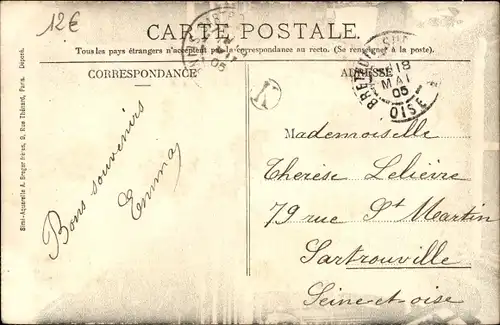 12€
CARTE POSTALE.
Tous les pays étrangers n'acceptent pas la correspondance au recto. (Se renseigner à la poste).
CORRESPONDANCE
ADRESSE
18
MAI
05
OISE
05
Mademoiselle
Therèse Lelièvre
79 rue St Martin
Sartrouville
Seine et oise
Bons souvenirs
Emma
Simi-Aquarelle A. Breger frères, 9, Rue Thénard, Paris. Déposé.